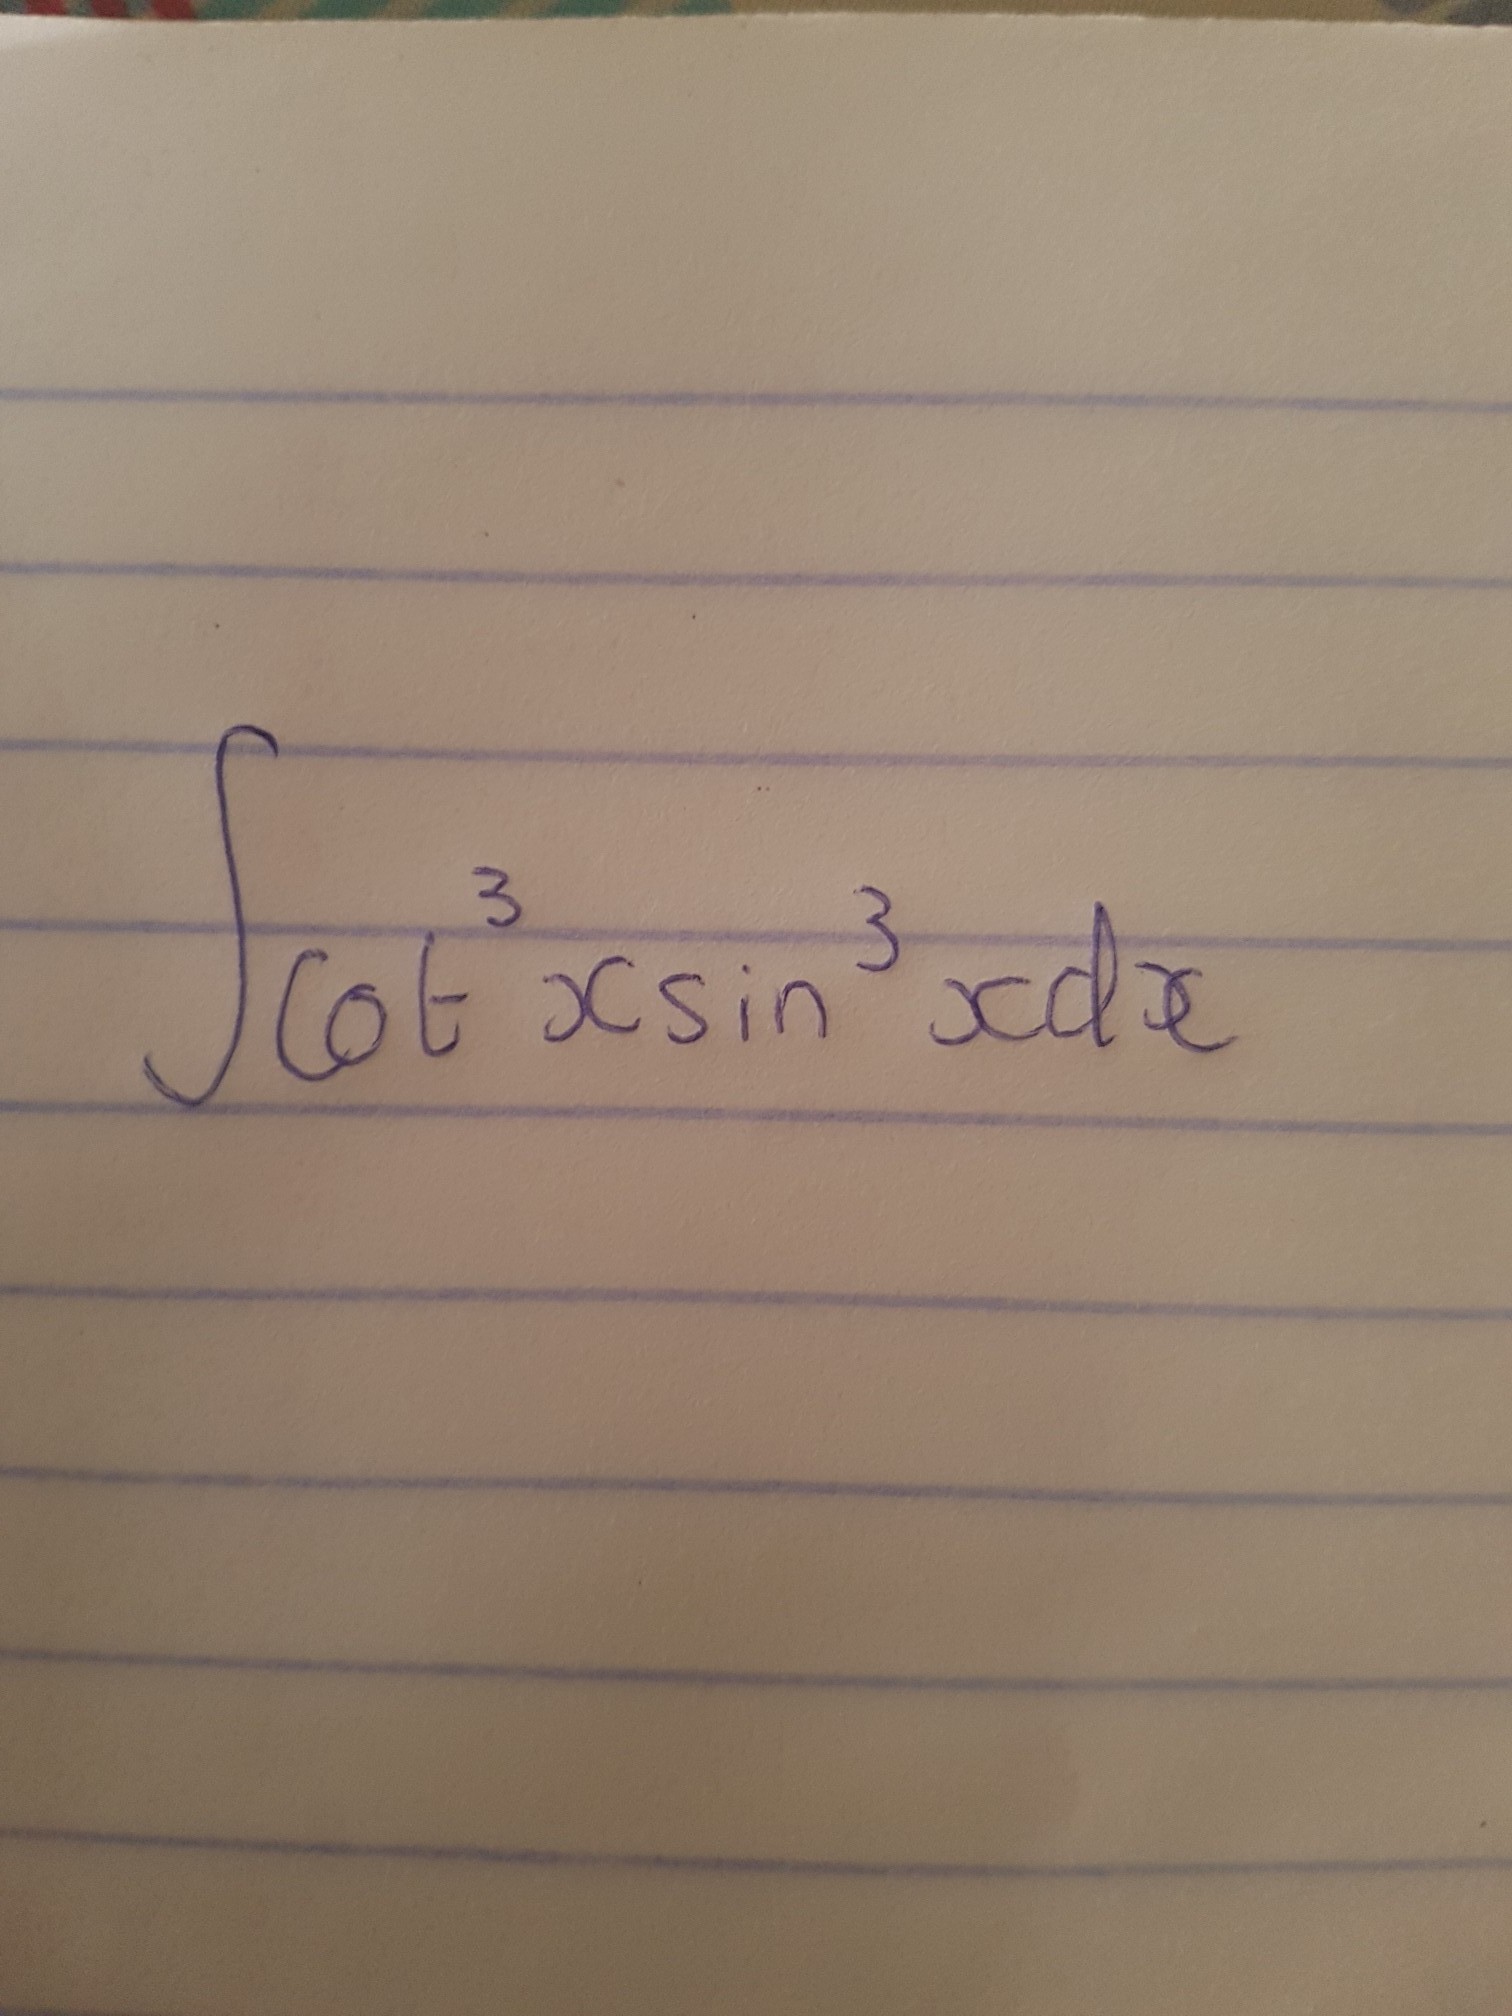 ∫cot³xsin³xdx